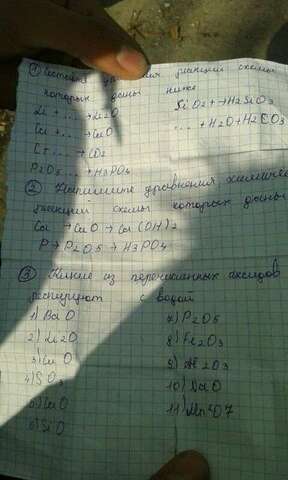 ① Составьте уравнения реакций схемы
которых даны ниже
Li + ... → Li2O
Ca + ... → CaO
C + ... → CO2
P2O5 ... → H3PO4
SiO2 + → H2SiO3
... + H2O → H2CO3
② Напишите уравнения химичес
реакций схемы которых даны
Ca → CaO → Ca(OH)2
P → P2O5 → H3PO4
③ Какие из перечисленных оксидов
реагируют с водой
1) BaO
2) Li2O
3) CuO
4) SO3
5) CaO
6) SiO
7) P2O5
8) Fe2O3
9) Al2O3
10) NaO
11) Mn2O7